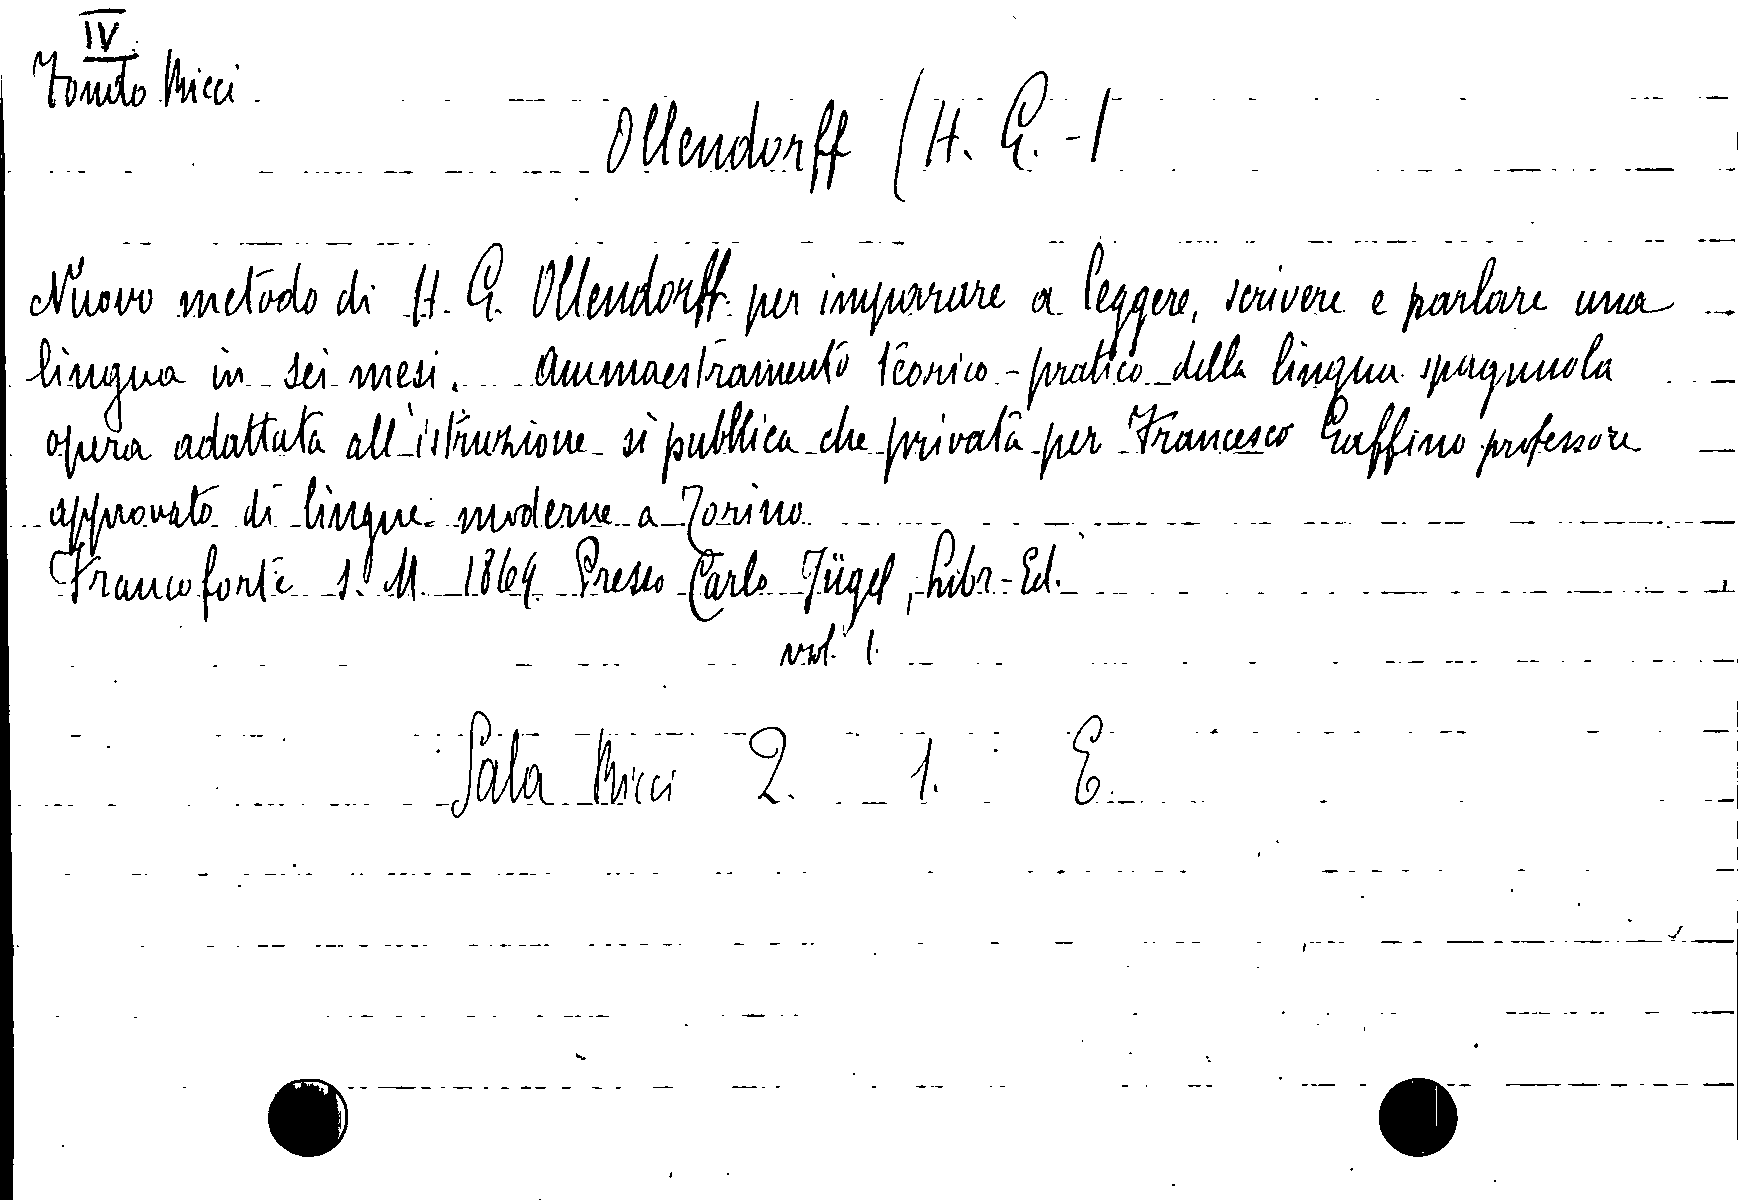 IV
Fondo Ricci
Ollendorff (H. G.-)
Nuovo metodo di H. G. Ollendorff per imparare a leggere, scrivere e parlare una
lingua in sei mesi. Ammaestramento teorico-pratico della lingua spagnuola
opera adattata all'istruzione sì pubblica che privata per Francesco Gaffino professore
approvato di lingue moderne a Torino
Francoforte s. M. 1864 Presso Carlo Jügel, Libr-Ed.
vol. 1.
Sala Ricci 2. 1. E.